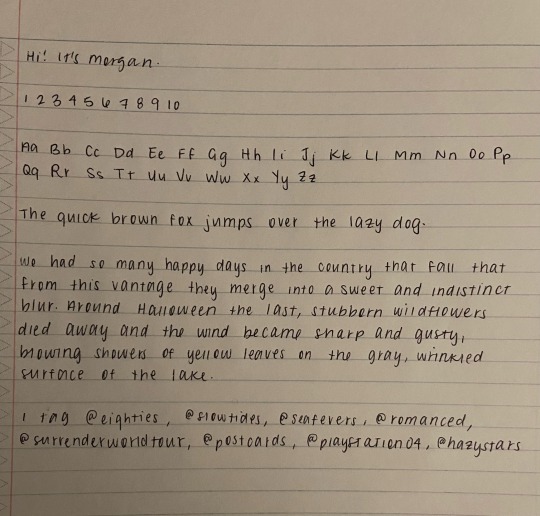 Hi! It's morgan.
1 2 3 4 5 6 7 8 9 10
Aa Bb Cc Dd Ee Ff Gg Hh Ii Jj Kk Ll Mm Nn Oo Pp
Qq Rr Ss Tt Uu Vv Ww Xx Yy Zz
The quick brown fox jumps over the lazy dog.
We had so many happy days in the country that fall that
from this vantage they merge into a sweet and indistinct
blur. Around Halloween the last, stubborn wildflowers
died away and the wind became sharp and gusty,
blowing showers of yellow leaves on the gray, wrinkled
surface of the lake.
I tag @eighties, @slowtides, @seafevers, @romanced,
@surrenderworldtour, @postcards, @playstation04, @hazystars